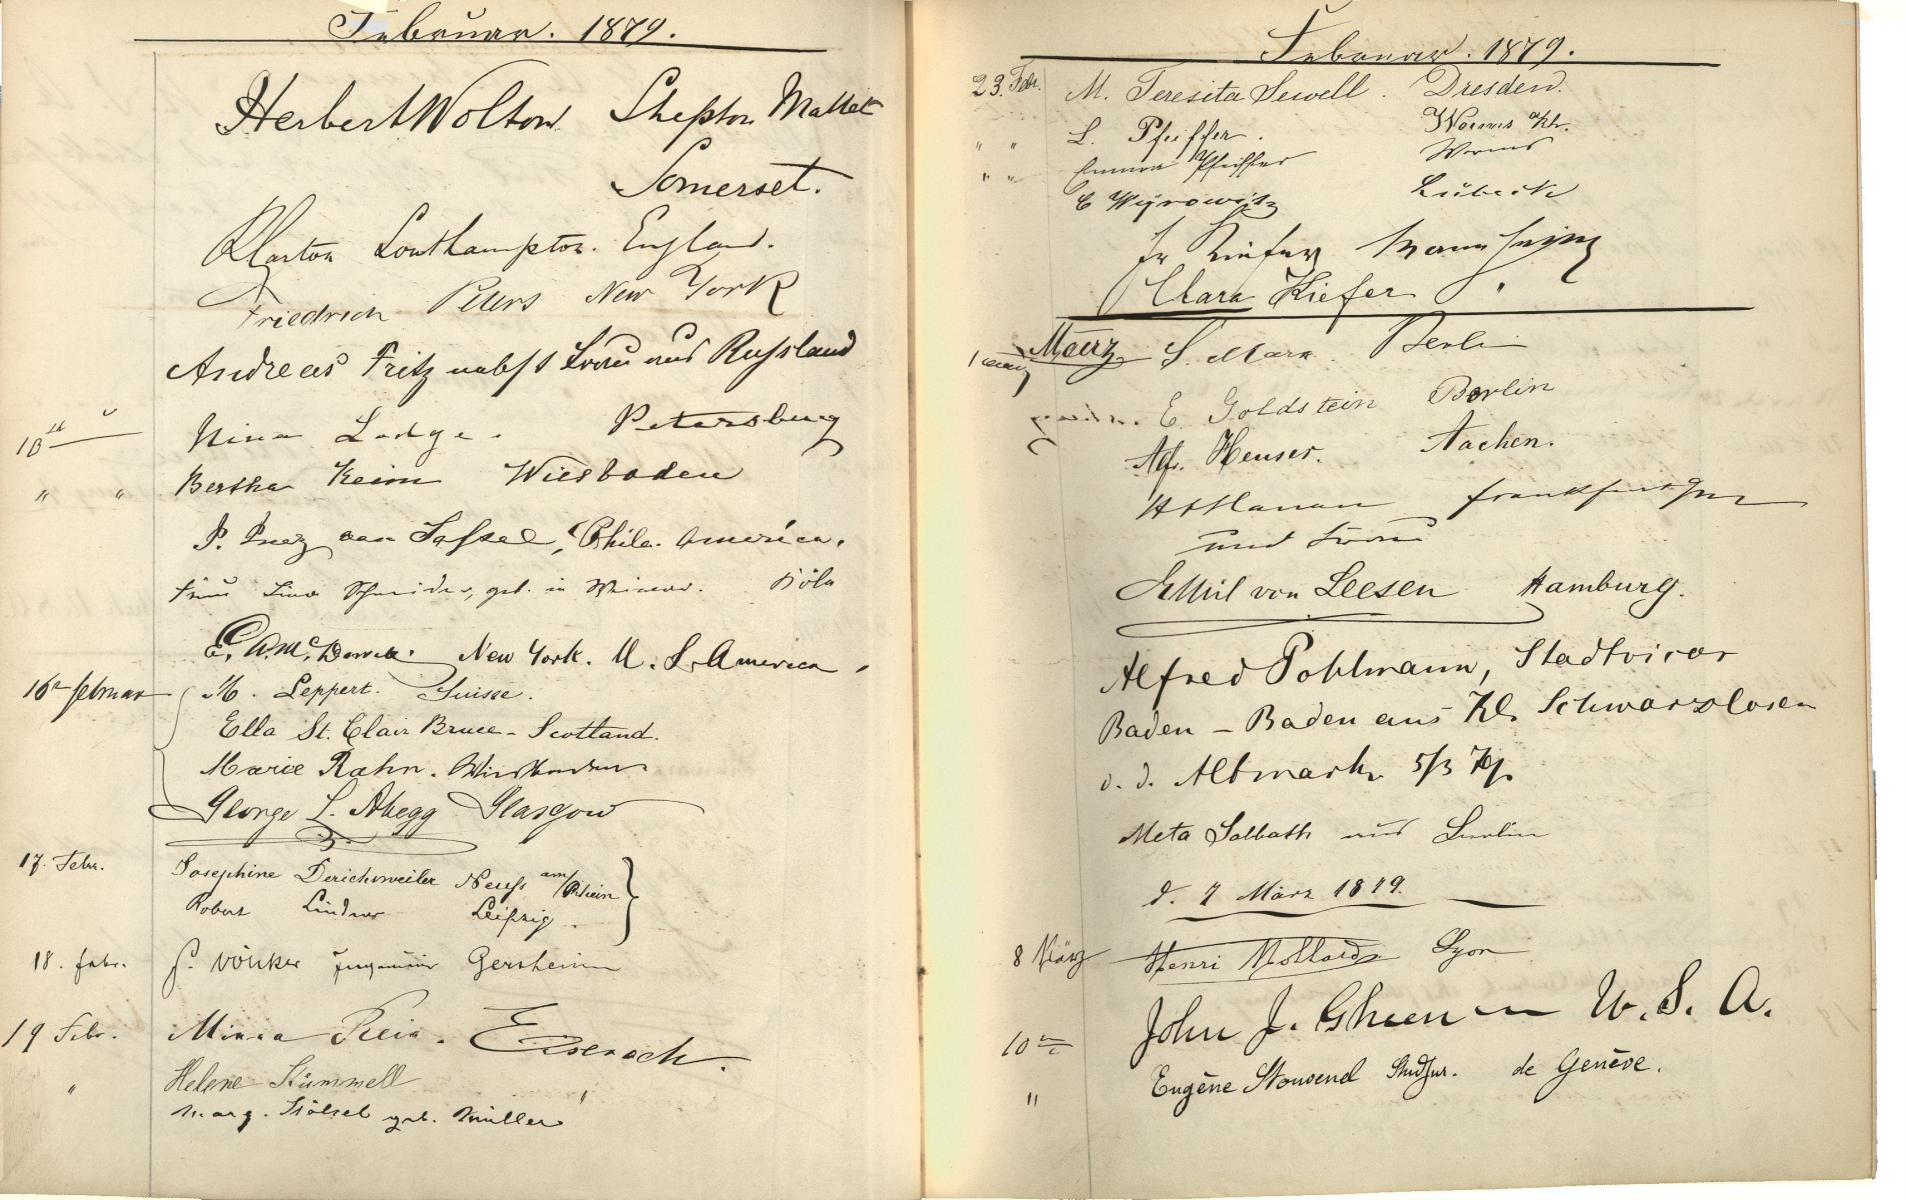 Februar. 1879.
Herbert Wolton Shepton Mallet
Somerset.
Southampton. England.
Friedrich Peters New York
Andreas Fritz nebst Frau aus Russland
Petersburg
10
Nina Lodge.
" " Bertha Keim Wiesbaden
P. Phila. America.
Frau Lina Schneider, geb. in Weimar. Köln
New York. U. S. America.
16 Februar M. Leppert. Suisse.
Ella St. Clair Bruce - Scotland.
Marie Rahn. Wiesbaden
George L. Abegg Glasgow
17. Febr. Josephine Derichsweiler Neuss am/Rhein
Robert Lindner Leipzig.
18. Febr. Gersheim
19 Febr. Minna Eisenach.
" Helene Kümmell
Marg. geb. Müller "
Februar. 1879.
23. Febr. M. Teresita Sewell. Dresden.
" " L. Pfeiffer. Worms a/Rh.
" " Emma Pfeiffer Worms
C Weyrowitz Lübeck
Fr Kiefer
Clara Kiefer "
März S. Marx. Berlin
E. Goldstein Berlin
Heuser. Aachen.
Frankfurt
und Frau
Emil von Leesen Hamburg.
Alfred Pohlmann, Stadtvicar
Baden - Baden aus Kl. Schwarzlosen
i. d. Altmark 5/3 79.
Meta Salbath aus Berlin
d. 7 März 1879.
8 März Henri Mollard Lyon
John J. Gheen U. S. A.
10
" Eugène Stud. jur. de Genève.